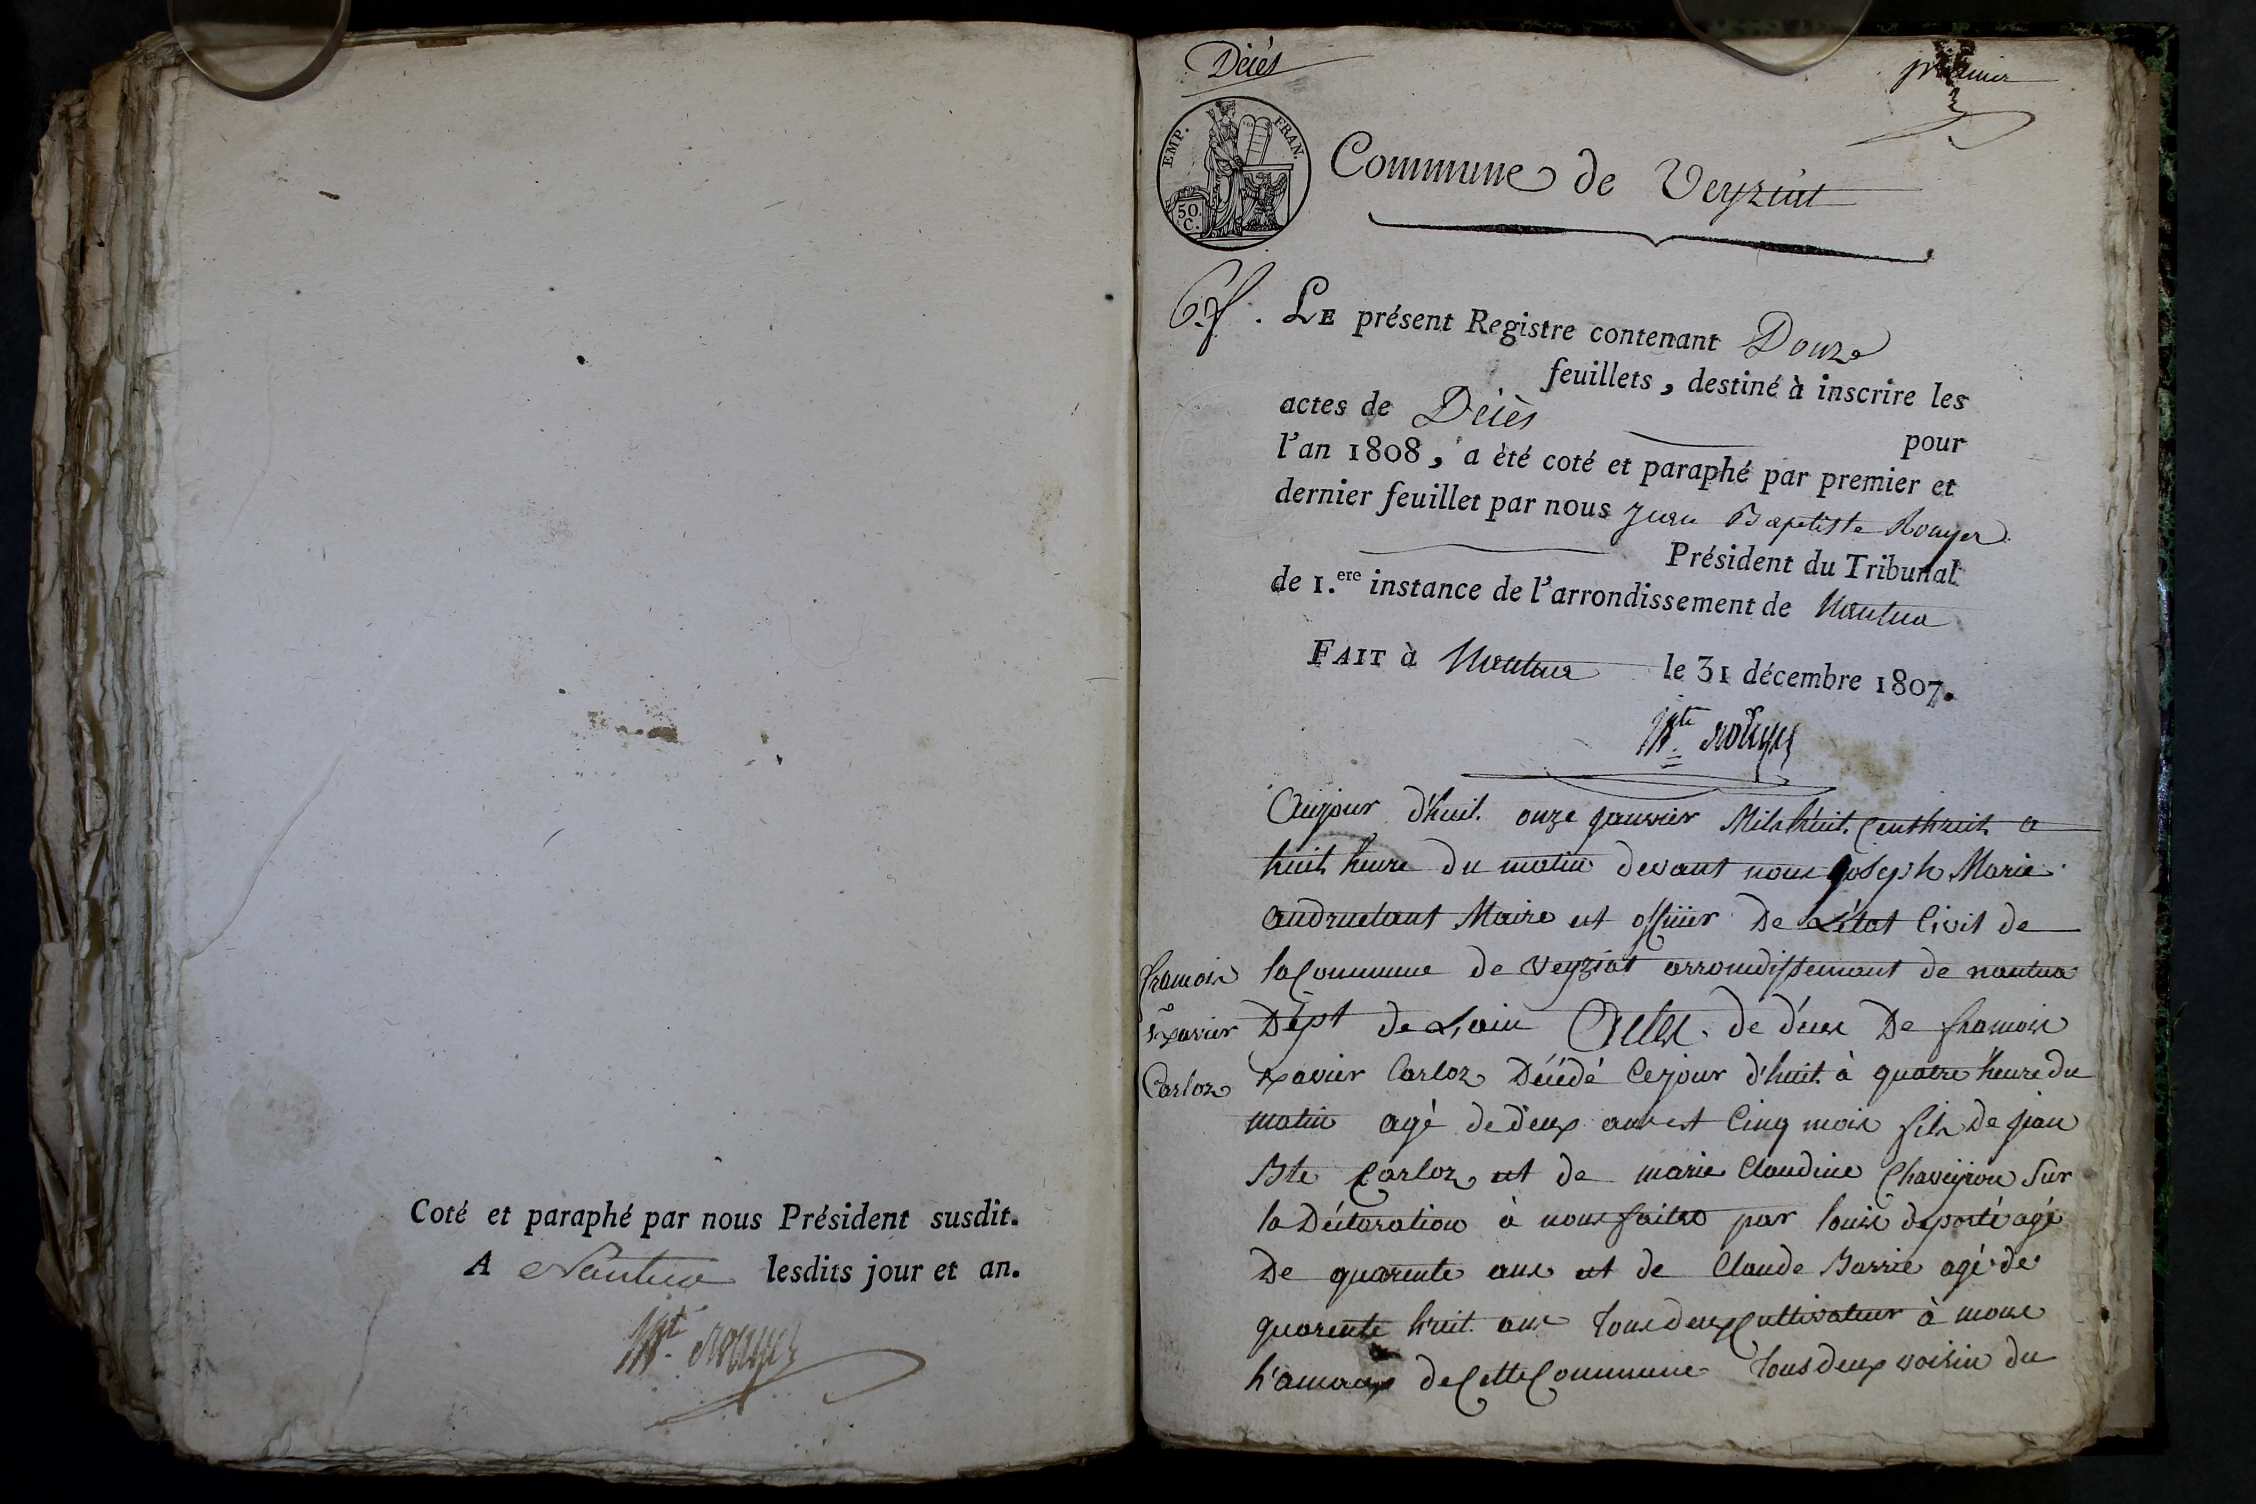 Coté et paraphé par nous Président susdit.
A Nantua lesdits jour et an.
Bte. Rouyer
Décés
premier
EMP. FRAN.
50.
C.
Commune de Veyziat
LE présent Registre contenant Douze
feuillets, destiné à inscrire les
actes de Décès pour
l'an 1808, a été coté et paraphé par premier et
dernier feuillet par nous Jean Baptiste Rouyer
Président du Tribunal
de 1.ere instance de l'arrondissement de Nantua
FAIT à Nantua le 31 décembre 1807.
Bte. Rouyer
Aujour d'huit onze janvier Mil huit Cent huit a
huit heure du matin devant nous joseph Marie
andruetant Maire et officier De L'état Civil de
la Commune de veyziat arroundissemant de nantua
Dépt de L'ain Acte de décés De françois
xavier Carloz Décédé Cejour d'huit à quatre heure du
matin agé de deux ans et Cinq mois fils De jean
Bte Carloz et de marie Claudine Chaveyron Sur
la Déclaration à nous faitte par louis deporté agé
De quarente ans et de Claude Barrié agé de
quarente huit ans tous deux Cultivateur à mons
hamaux de Cette Commune tous deux voisin du
françois
xavier
Carloz